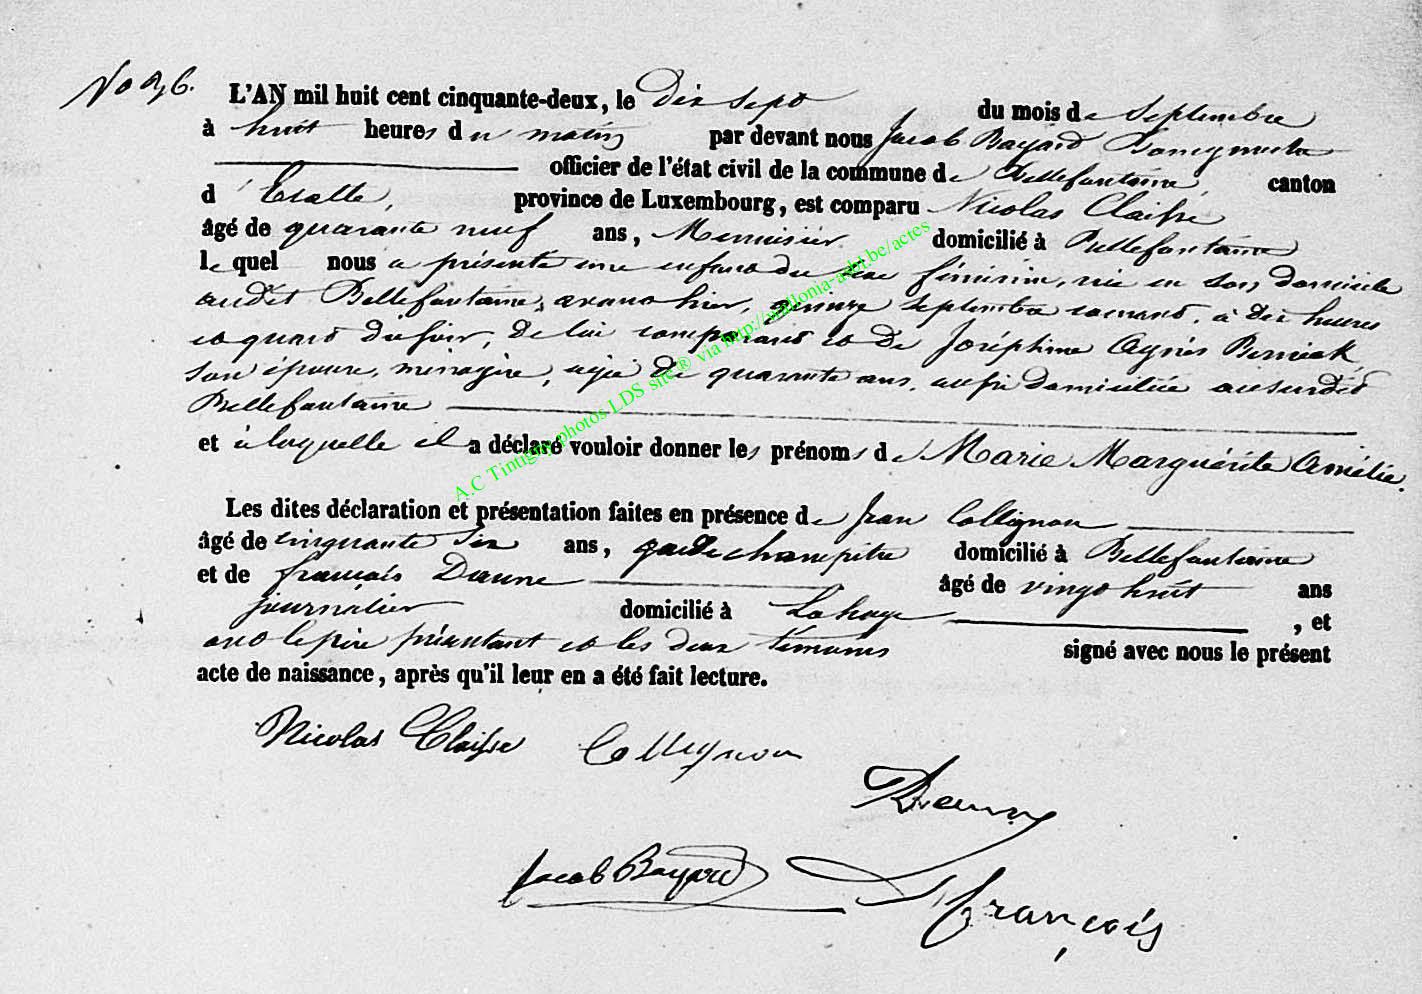 No 36.
L'AN mil huit cent cinquante-deux, le Dix sept du mois de Septembre
à huit heures du matin par devant nous Jacob Bayard Bourgmestre
officier de l'état civil de la commune de Bellefontaine, canton
d'Etalle, province de Luxembourg, est comparu Nicolas Claisse
âgé de quarante neuf ans, Menuisier domicilié à Bellefontaine
lequel nous a présenté une enfant du sexe féminin, née en son domicile
audit Bellefontaine, avant hier, quinze septembre courant, à dix heures
et quart du soir, de lui comparant et de Joséphine Agnès
son épouse, ménagère, agée de quarante ans, aussi domiciliée au susdit
Bellefontaine
et à laquelle il a déclaré vouloir donner les prénoms de Marie Marguérite Amélie.
Les dites déclaration et présentation faites en présence de Jean Collignon
âgé de cinquante six ans, garde champêtre domicilié à Bellefontaine
et de françois âgé de vingt huit ans
journalier domicilié à Lahage , et
ont le père présentant et les deux témoins signé avec nous le présent
acte de naissance, après qu'il leur en a été fait lecture.
Nicolas Claisse Collignon
Jacob Bayard françois
A.C Tintigny photos LDS site ® via http://wallonia-asbl.be/actes